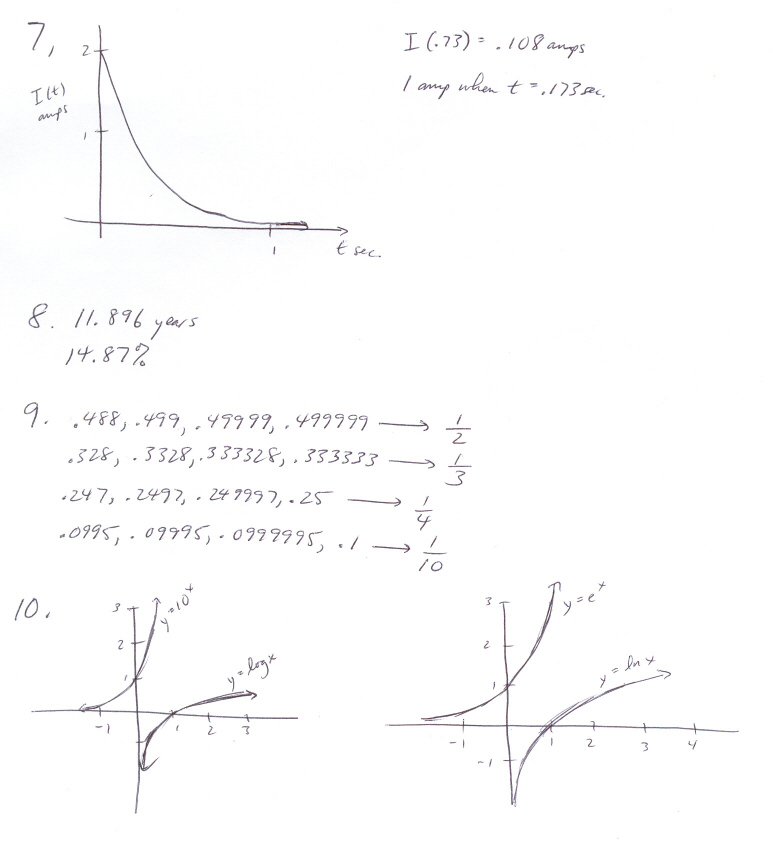 7,
2
I(t)
amps
1
1
t sec.
I(.73) = .108 amps
1 amp when t = .173 sec.
8. 11.896 years
14.87%
9. .488, .499, .49999, .499999 → 1/2
.328, .3328, .333328, .333333 → 1/3
.247, .2497, .249997, .25 → 1/4
.0995, .09995, .0999995, .1 → 1/10
10.
3
2
1
y=10^x
y=logx
-1 1 2 3
3
2
1
y=e^x
y=lnx
-1 1 2 3 4
-1